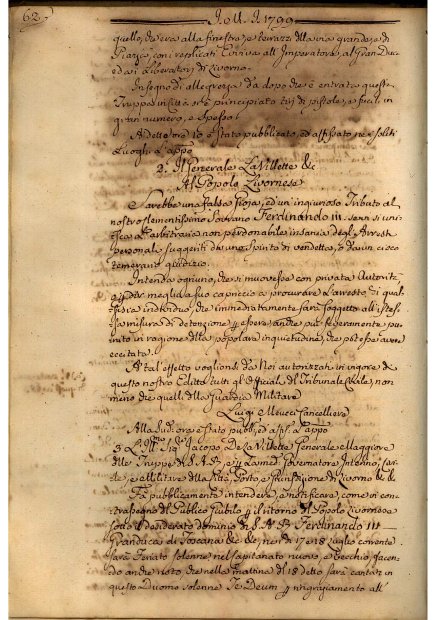 62. Ao. M. I. 1799
quello, che era alle finestre, e terrazzi della via grande, e di
Piazza, con i replicati Evviva all' Imperatore, al Gran Duca
ed a i Liberatori di Livorno.
In segno di allegrezza da dopo che è entrata questa
Truppa in Città si è principiato tiri di pistole, e fucili, in
gran numero, e spesso.
A dett' ore 10 è stato pubblicato, ed affissato nei soliti
Luoghi L'appo
2. Il Generale La Villette &c
Al Popolo Livornese
Sarebbe una falsa gioja, ed un ingiurioso Tributo al
nostro clementissimo Sovrano Ferdinando III. se si uni-
sse a l'arbitrario non perdonabile insania degl' Arresti
personali suggeriti da uno spirito di vendetta, o da un cieco
temerario giudizio.
Intenda ognuno, che si muovesse con privata Autorità
o per meglio suo capriccio a procurare l'arresto di qual-
sisia individuo, che immediatamente sarà soggetto all' istes-
sa misura di detenzione per essere anche più severamente pu-
nito in ragione della popolare inquietudine, che potesse avere
eccitata.
A tal' effetto vogliono da Noi autorizzati in vigore di
questo nostro Editto tutti gl' Officiali di Tribunale Civile, non
meno che quelli della Guardia Militare
Luigi Meucci Cancelliere
Alla sud. ora è stato pubbl. ed aff. L'appo
3. L'Ill.mo Sig.r Jacopo De La Villette Generale Maggiore
delle Truppe di S.A.R. e per la med. Governatore Interino, Civi-
le, e Militare della Città, Porto e Giurisdizione di Livorno &c &c
Fa pubblicamente intendere, e notificare, come in con-
trassegno di Publico Giubilo per il ritorno del Popolo Livornese
sotto il desiderato dominio di S.A.R. Ferdinando III
Granduca di Toscana &c &c, nei dì 17 e 18 luglio corrente
sarà Feriato solenne, nel capitanato nuovo, e Vecchio facen-
do anche noto, che nella mattina del 18 detto sarà cantar in
questo Duomo solenne Te Deum per ringraziamento all'